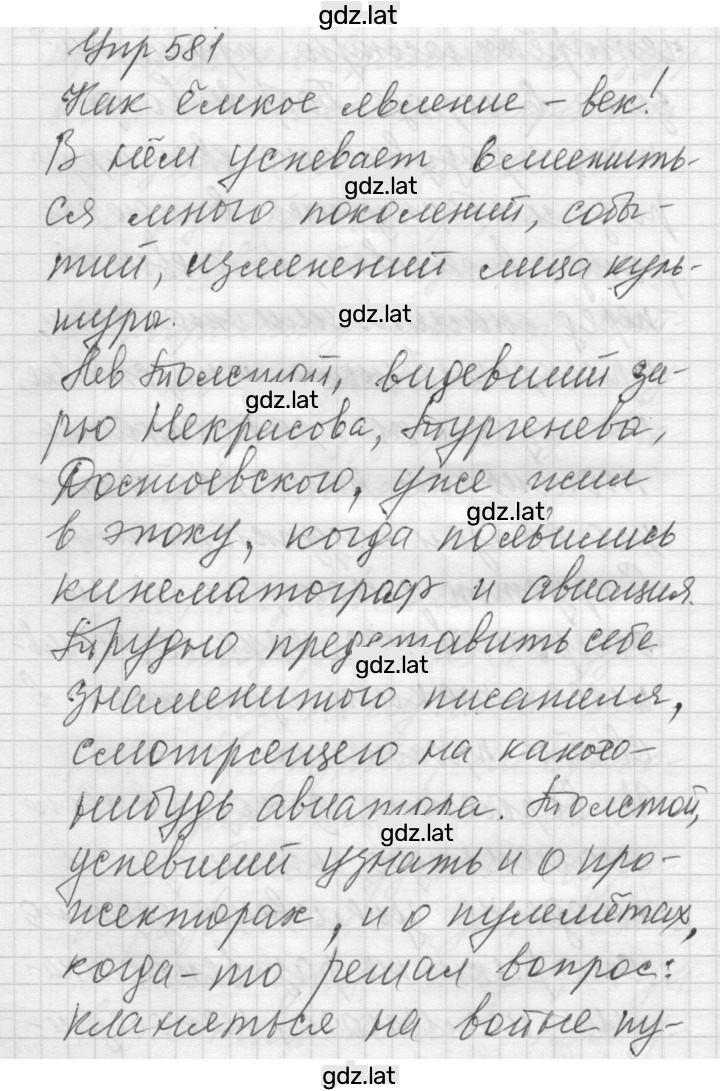 gdz.lat
Упр 581
Как ёмкое явление – век!
В нём успевает вместить-
gdz.lat
ся много поколений, собы-
тий, изменений лица куль-
gdz.lat
туры.
Лев Толстой, видевший за-
gdz.lat
рю Некрасова, Тургенева,
Достоевского, уже жил
gdz.lat
в эпоху, когда появились
кинематограф и авиация.
Трудно представить себе
gdz.lat
знаменитого писателя,
смотрящего на какого-
нибудь авиатора. Толстой,
gdz.lat
успевший узнать и о про-
жекторах, и о пулемётах,
когда-то решал вопрос:
кланяться на войне пу-
gdz.lat